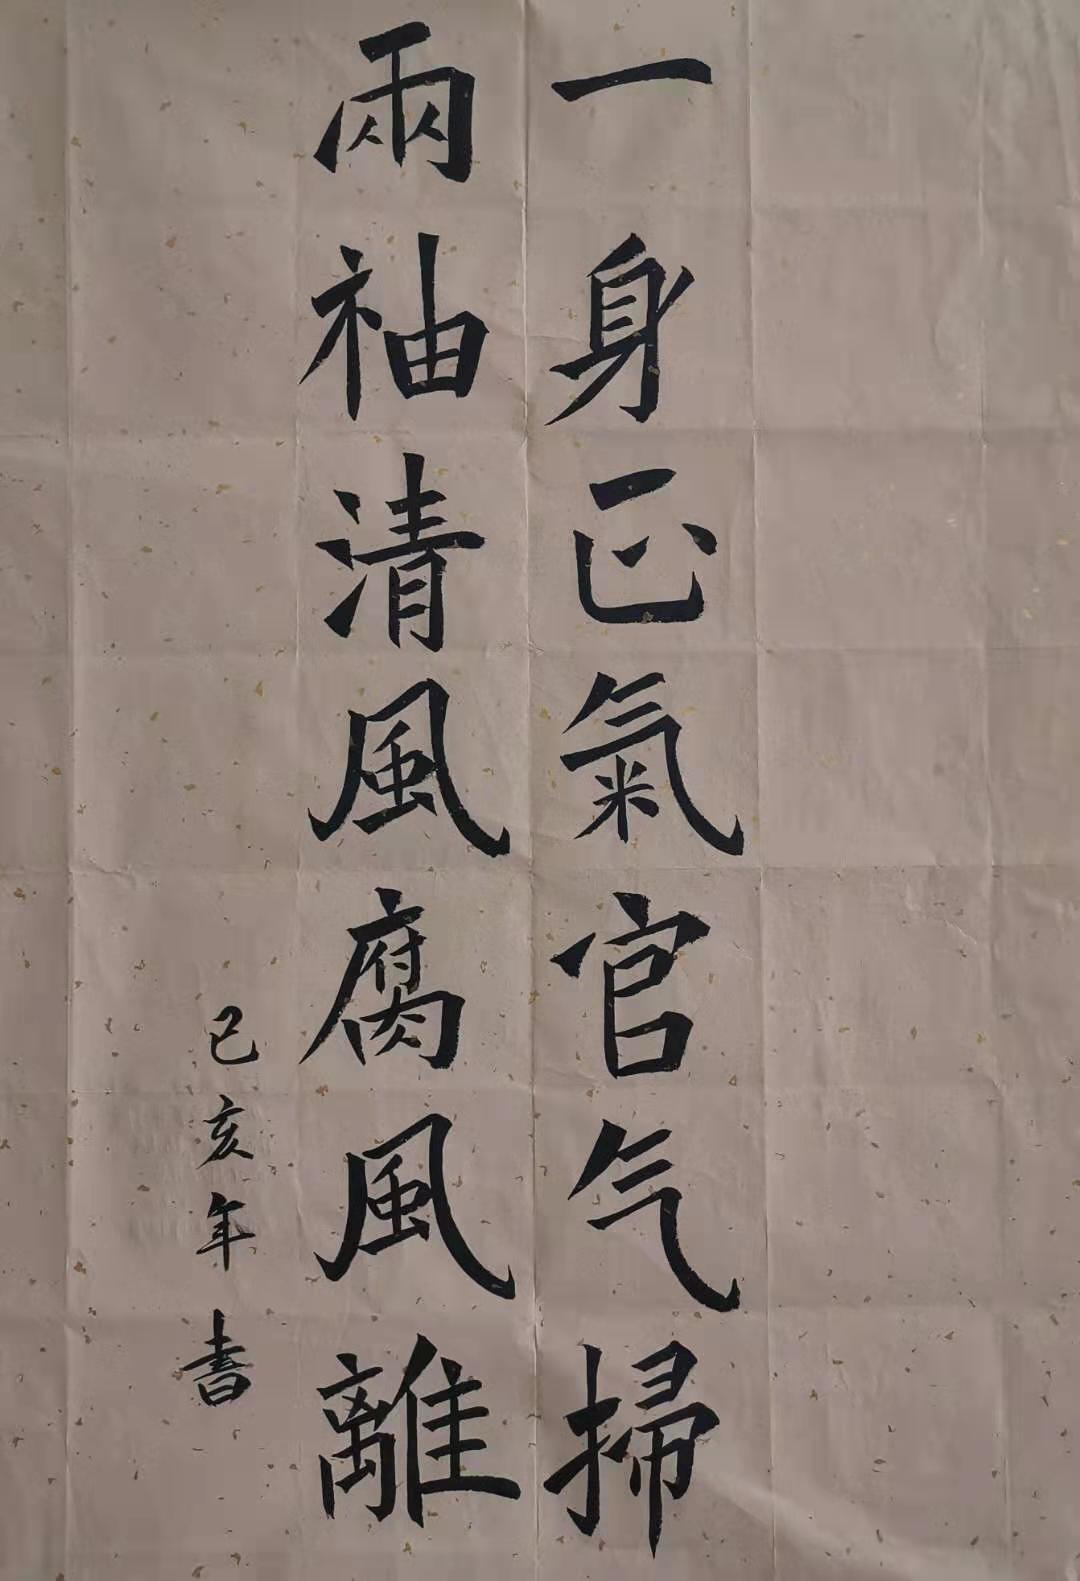 一身正氣官气掃
兩袖清風腐風離
己亥年書